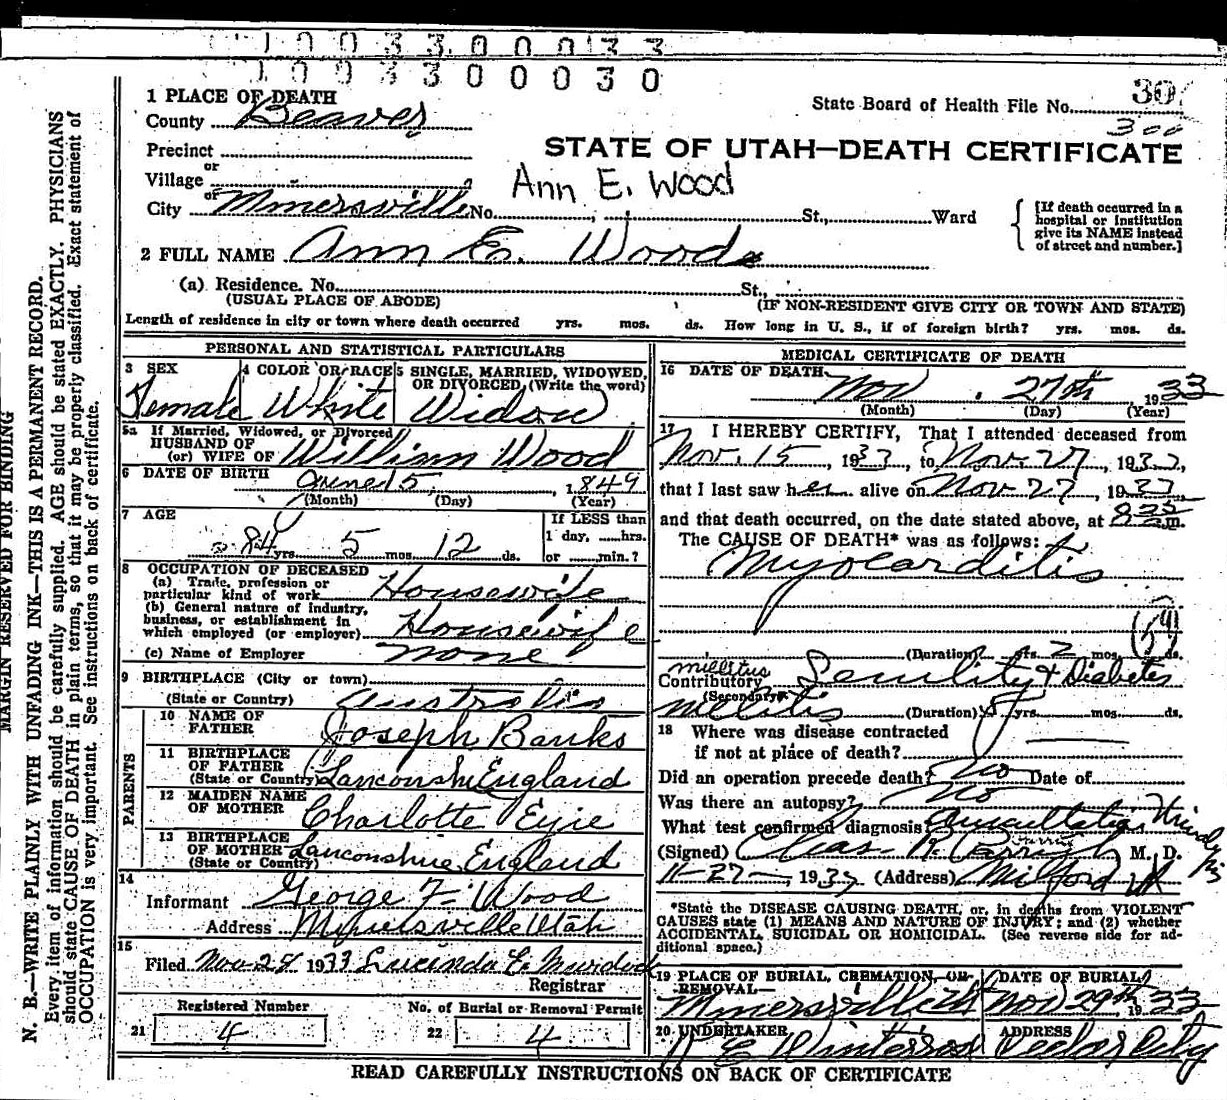 1 0 0 3 3 0 0 0 3 3
1 0 0 3 3 0 0 0 3 0
30
1 PLACE OF DEATH
State Board of Health File No.
County Beaver
300
STATE OF UTAH—DEATH CERTIFICATE
Precinct
or
Village
Ann E. Wood
or
City Minersville No. St., Ward
[If death occurred in a hospital or institution give its NAME instead of street and number.]
2 FULL NAME Ann E. Wood
(a) Residence. No. St.,
(USUAL PLACE OF ABODE) (IF NON-RESIDENT GIVE CITY OR TOWN AND STATE)
Length of residence in city or town where death occurred yrs. mos. ds. How long in U. S., if of foreign birth? yrs. mos. ds.
PERSONAL AND STATISTICAL PARTICULARS
3 SEX
Female
4 COLOR OR RACE
White
5 SINGLE, MARRIED, WIDOWED, OR DIVORCED (Write the word)
Widow
5a If Married, Widowed, or Divorced
HUSBAND OF
(or) WIFE OF William Wood
6 DATE OF BIRTH June 15, 1849
(Month) (Day) (Year)
7 AGE
84 yrs. 5 mos. 12 ds.
If LESS than
1 day, hrs.
or min.?
8 OCCUPATION OF DECEASED
(a) Trade, profession or
particular kind of work Housewife
(b) General nature of industry,
business, or establishment in
which employed (or employer) Housewife
(c) Name of Employer none
9 BIRTHPLACE (City or town)
(State or Country) Australia
PARENTS
10 NAME OF
FATHER Joseph Banks
11 BIRTHPLACE
OF FATHER
(State or Country) Lanconshire England
12 MAIDEN NAME
OF MOTHER Charlotte
13 BIRTHPLACE
OF MOTHER
(State or Country) Lanconshire England
14
Informant George F. Wood
Address Minersville Utah
15
Filed Nov 28 1933 Lucinda E.
Registrar
Registered Number
21 4
No. of Burial or Removal Permit
22 4
MEDICAL CERTIFICATE OF DEATH
16 DATE OF DEATH
Nov. 27th 1933
(Month) (Day) (Year)
17 I HEREBY CERTIFY, That I attended deceased from
Nov. 15, 1933, to Nov. 27, 1933,
that I last saw her alive on Nov 27, 1933
and that death occurred, on the date stated above, at m.
The CAUSE OF DEATH* was as follows:
Myocarditis
(59)
(Duration) yrs. 2 mos. ds.
mellitus
Contributory Senility & Diabetes
(Secondary)
mellitis (Duration) yrs. mos. ds.
18 Where was disease contracted
if not at place of death?
Did an operation precede death? no Date of
Was there an autopsy? no
What test confirmed diagnosis
(Signed) Chas. M. D.
11-27-, 1933 (Address) Milford Ut
*State the DISEASE CAUSING DEATH, or, in deaths from VIOLENT
CAUSES state (1) MEANS AND NATURE OF INJURY; and (2) whether
ACCIDENTAL, SUICIDAL OR HOMICIDAL. (See reverse side for ad-
ditional space.)
19 PLACE OF BURIAL, CREMATION, OR
REMOVAL—
Minersville Ut
DATE OF BURIAL
Nov 29th 1933
20 UNDERTAKER
ADDRESS
Cedar City
READ CAREFULLY INSTRUCTIONS ON BACK OF CERTIFICATE
MARGIN RESERVED FOR BINDING
N. B.—WRITE PLAINLY WITH UNFADING INK—THIS IS A PERMANENT RECORD.
Every item of information should be carefully supplied. AGE should be stated EXACTLY. PHYSICIANS
should state CAUSE OF DEATH in plain terms, so that it may be properly classified. Exact statement of
OCCUPATION is very important. See instructions on back of certificate.